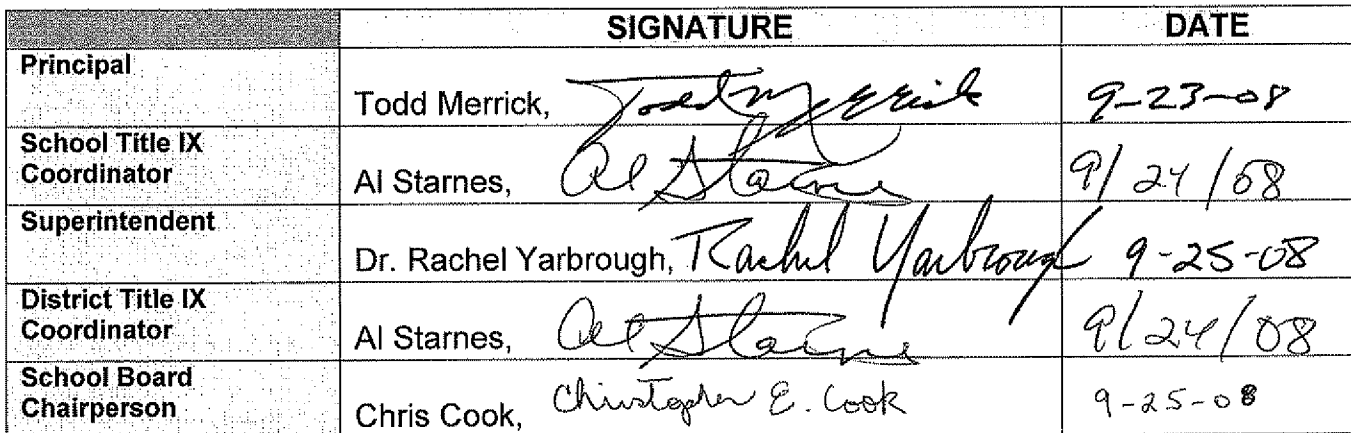 SIGNATURE DATE
Principal
Todd Merrick, Todd Merrick 9-23-08
School Title IX
Coordinator
Al Starnes, Al Starnes 9/24/08
Superintendent
Dr. Rachel Yarbrough, Rachel Yarbrough 9-25-08
District Title IX
Coordinator
Al Starnes, Al Starnes 9/24/08
School Board
Chairperson
Chris Cook, Christopher E. Cook 9-25-08